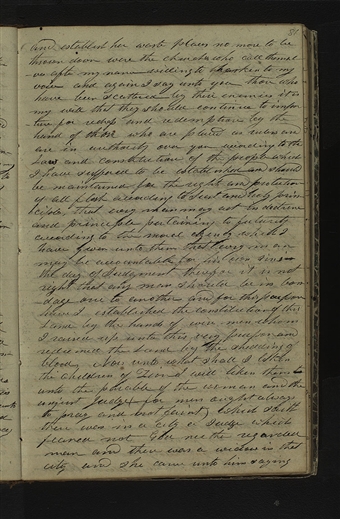 and establish her waste places no more to be
thrown down were the churches who call themsel-
ves after my name willing to hearken to my
voice and again I say unto you those who
have been scattered by their enemies it is
my will that they should continue to impor-
tune for redress and redemption by the
hand of those who are placed as rulers and
are in authority over you according to the
Law and constitution of the people which
I have suffered to be established and should
be maintained for the rights and protection
of all flesh according to Just and holy prin-
ciples, that every man may act in doctrine
and principle pertaining to futurity
according to the moral agency which I
have given unto them that every man
may be accountable for his own sins in
the day of Judgment therefore it is not
right that any man should be in bon-
dage one to another and for this purpose
have I established the constitution of this
Land by the hands of wise men whom
I raised up unto this very purpose and
redeemed the Land by the shedding of
blood. Now unto what shall I liken
the children of Zion I will liken them
unto the parable of the woman and the
unjust Judge (for men ought always
to pray and not faint) Which saith
there was in a city a Judge which
feared not God neither regarded
man and there was a widow in that
city and she came unto him saying